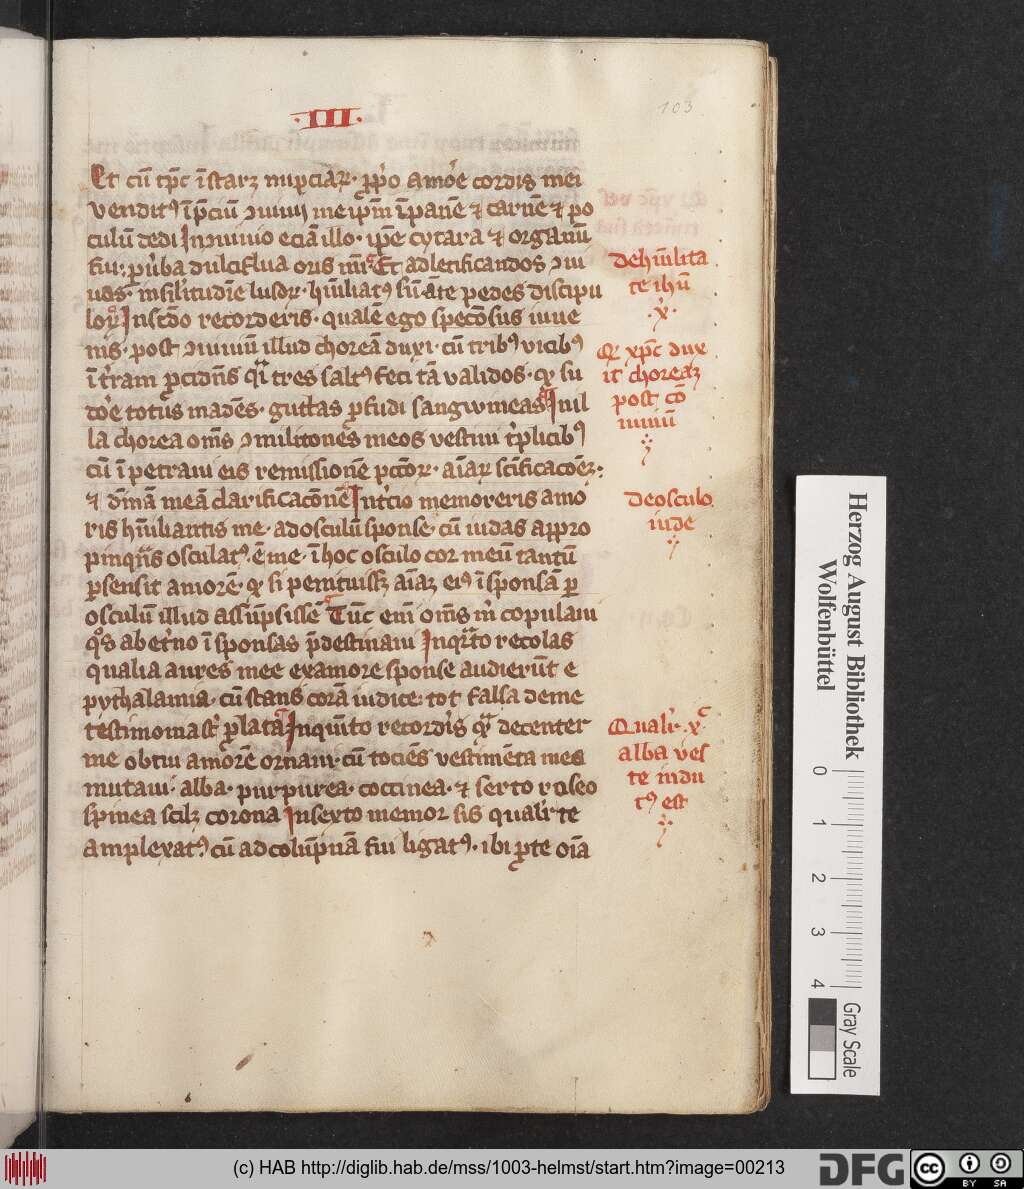 ·III·
103
Et cū tp̄c īstarꝫ nupciaꝝ· ꝓp̄o amōe cordis mei
venditꝰ ī p̄ciū ↄuiuij me ip̄m ī panē ⁊ carnē ⁊ po
culū dedi In ↄuiuio eciā illo· ip̄e cytara ⁊ organū
fui: ꝑ v̄ba dulciflua oris mī Et ad letificandos ↄui
uas· in silitudīe lusoꝝ· hūiliatꝰ sū āte pedes discipu
loꝝ In scdo recorderis· qualē ego specōsus iuue
nis· post ↄuiuiū illud choreā duxi· cū tribꝰ vicibꝰ
ī t̄ram ꝓcidn̄s q̄i tres saltꝰ feci tā validos· qꝫ su
dōe totus madēs· guttas ꝓfudi sangwineas In il
la chorea om̄s ↄmilitones meos vestiui t̄plicibꝰ
cū īpetraui eis remissionē pctōꝝ· aīaꝝ sc̄ificacōeꝫ:
⁊ dīnā meā clarificacōnē In t̄cio memoreris amo
ris hūiliantis me· ad osculū sponse· cū iudas appro
pinqn̄s osculatꝰ ē me· ī hoc osculo cor meū tantū
ꝑsensit amorē· qꝫ si penituissꝫ aīaꝫ eiꝰ ī sponsā ꝑ
osculū illud assūpsissē Tūc em̄ om̄s m̄ copulaui
q̊s ab et̄no ī sponsas p̄destinaui In qrto recolas
qualia aures mee ex amore sponse audierūt e
pythalamia· cū stans corā iudice· tot falsa de me
testimonia st̄ ꝓlata In quīto record̄is qr̄ decenter
me ob tui amorē ornaui· cū tociēs vestimēta mea
mutaui· alba· purpurea· coccinea· ⁊ serto roseo
spinea scilꝫ corona In sexto memor sis qualit̄ te
amplexatꝰ cū ad colūpnā fui ligatꝰ· ibi ꝓ te oīa
de hūilita
te ihū
·x̄·
Qꝫ xp̄c dux
it choreaꝫ
post cō
uiuiū
de osculo
iude
Qualit̄ ·x̄ᶜ·
alba ves
te indu
tꝰ est
Herzog August Bibliothek
Wolfenbüttel
0 1 2 3 4
Gray Scale
(c) HAB http://diglib.hab.de/mss/1003-helmst/start.htm?image=00213
DFG
cc BY SA